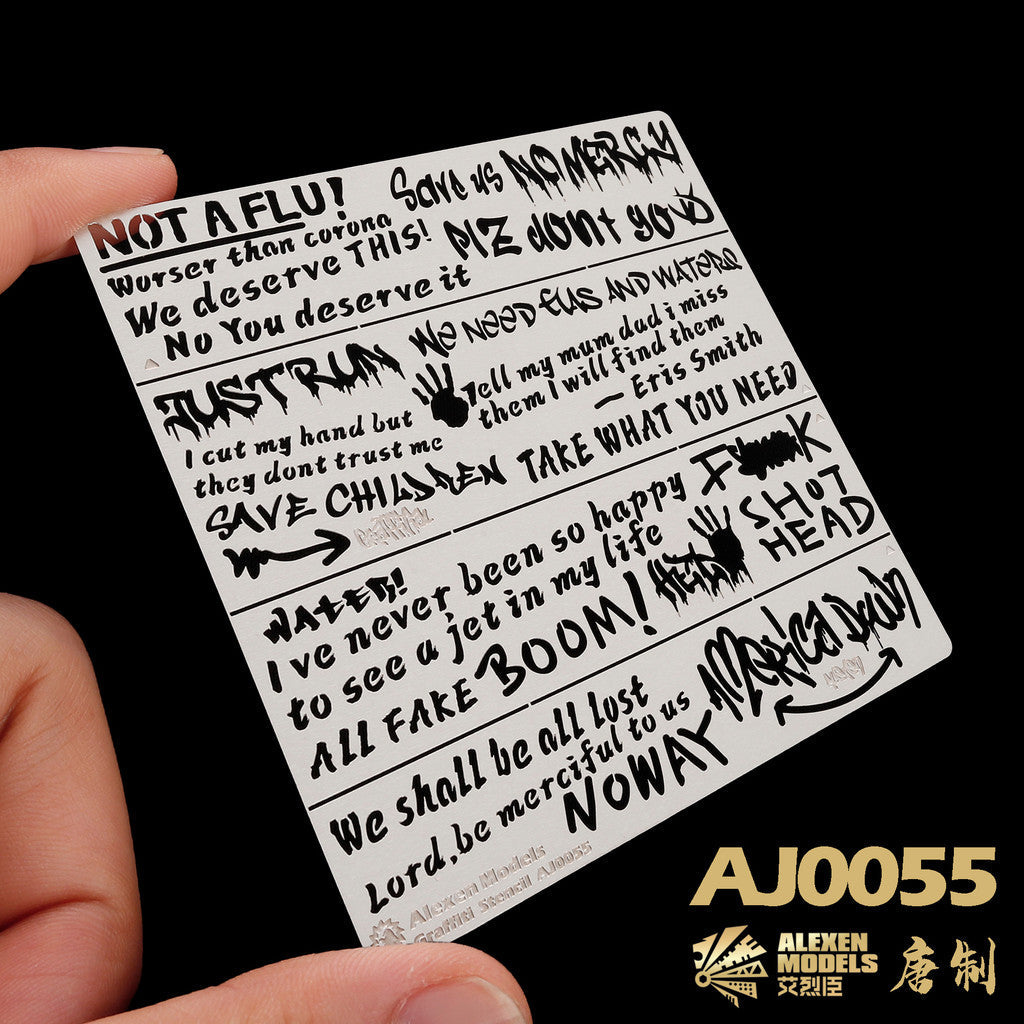 NOT A FLU!
Save us
NO MERCY
Worser than corona
We deserve THIS!
PLZ dont go
No You deserve it
JUST RUN
We NEED FUS AND WATERS
Tell my mum dad i miss
them I will find them
— Eris Smith
I cut my hand but
they dont trust me
SAVE CHILDREN
TAKE WHAT YOU NEED
WATER!
I ve never been so happy
to see a jet in my life
F K
SHOT
HEAD
HELP
ALL FAKE
BOOM!
We shall be all lost
Lord,be merciful to us
AMERICA DOWN
NO WAY
Alexen Models
Graffiti Stencil AJ0055
AJ0055
ALEXEN
MODELS
艾烈臣
唐制